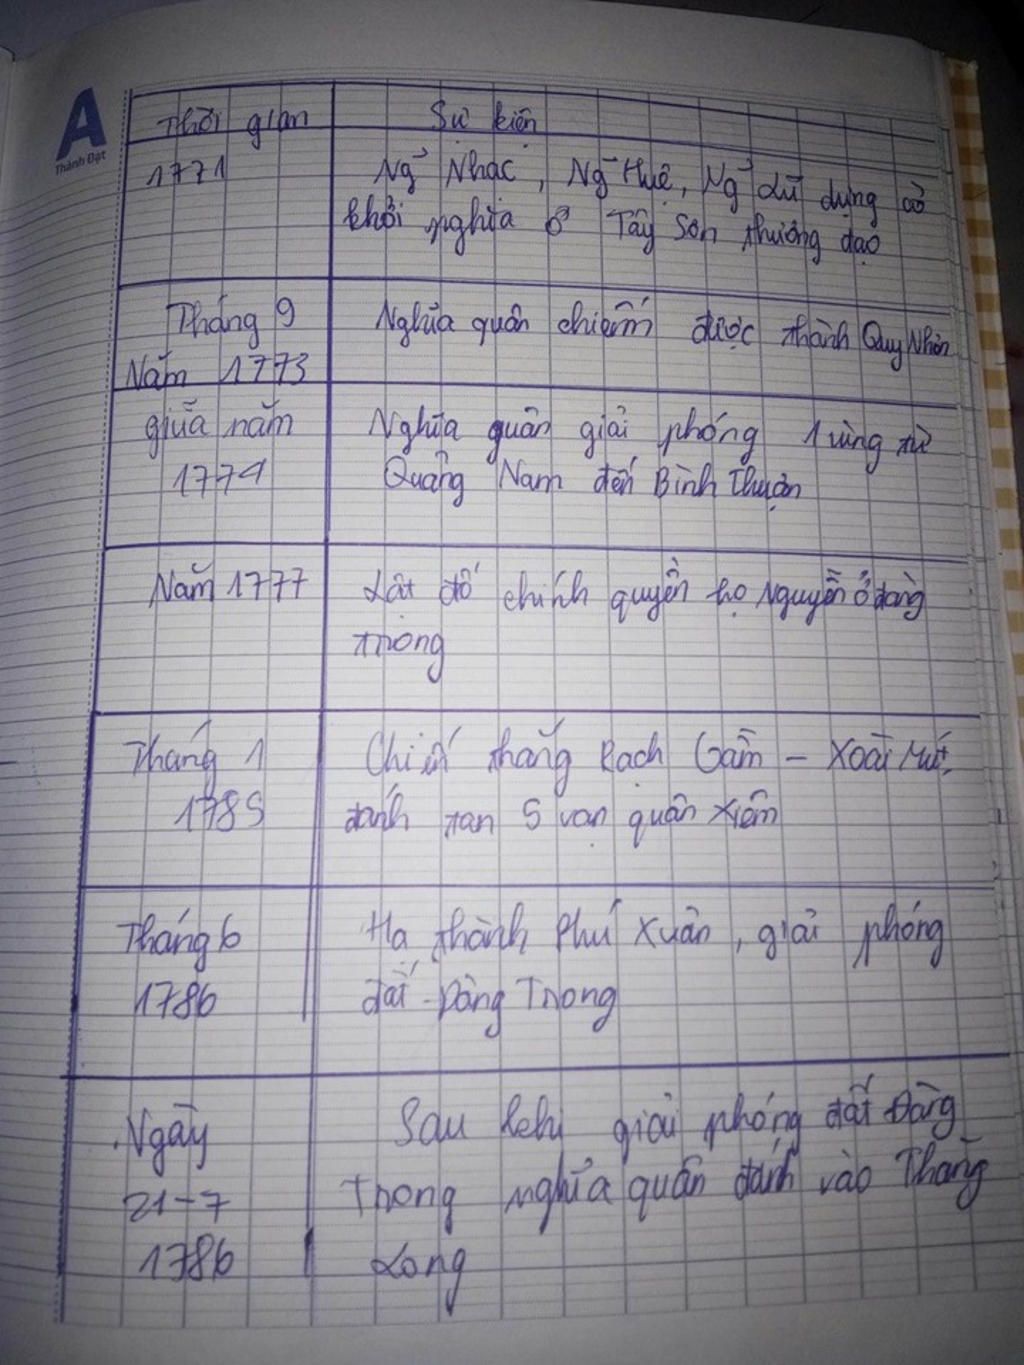 A
Thành Đạt
Thời gian Sự kiện
1771 Ng~ Nhạc, Ng~ Huệ, Ng~ Lữ dựng cờ
khởi nghĩa ở Tây Sơn thượng đạo
Tháng 9 Nghĩa quân chiếm được thành Quy Nhơn
Năm 1773
giữa năm Nghĩa quân giải phóng 1 vùng từ
1774 Quảng Nam đến Bình Thuận
Năm 1777 Lật đổ chính quyền họ Nguyễn ở đàng
trong
Tháng 1 Chiến thắng Rạch Gầm - Xoài Mút,
1785 đánh tan 5 vạn quân Xiêm
Tháng 6 Hạ thành Phú Xuân, giải phóng
1786 đất Đàng Trong
Ngày Sau khi giải phóng đất Đàng
21-7 Trong nghĩa quân đánh vào Thăng
1786 Long